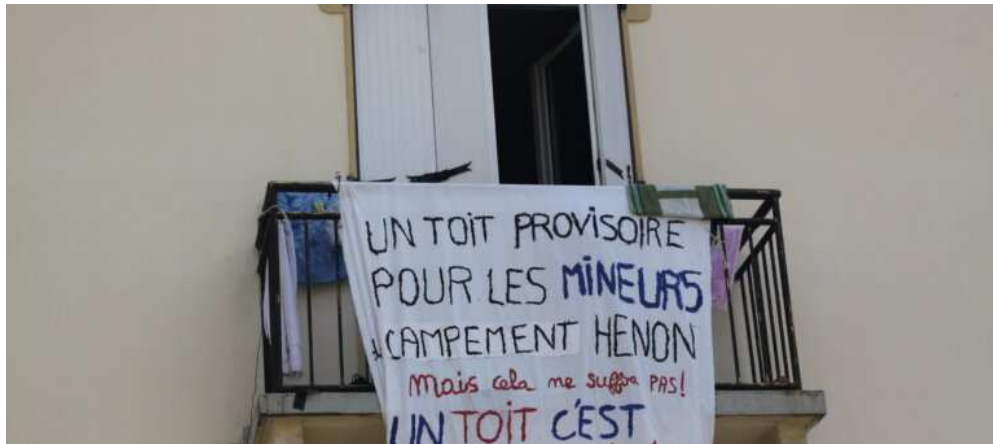 UN TOIT PROVISOIRE
POUR LES MINEURS
CAMPEMENT HENON
Mais cela ne suffira PAS!
UN TOIT C'EST